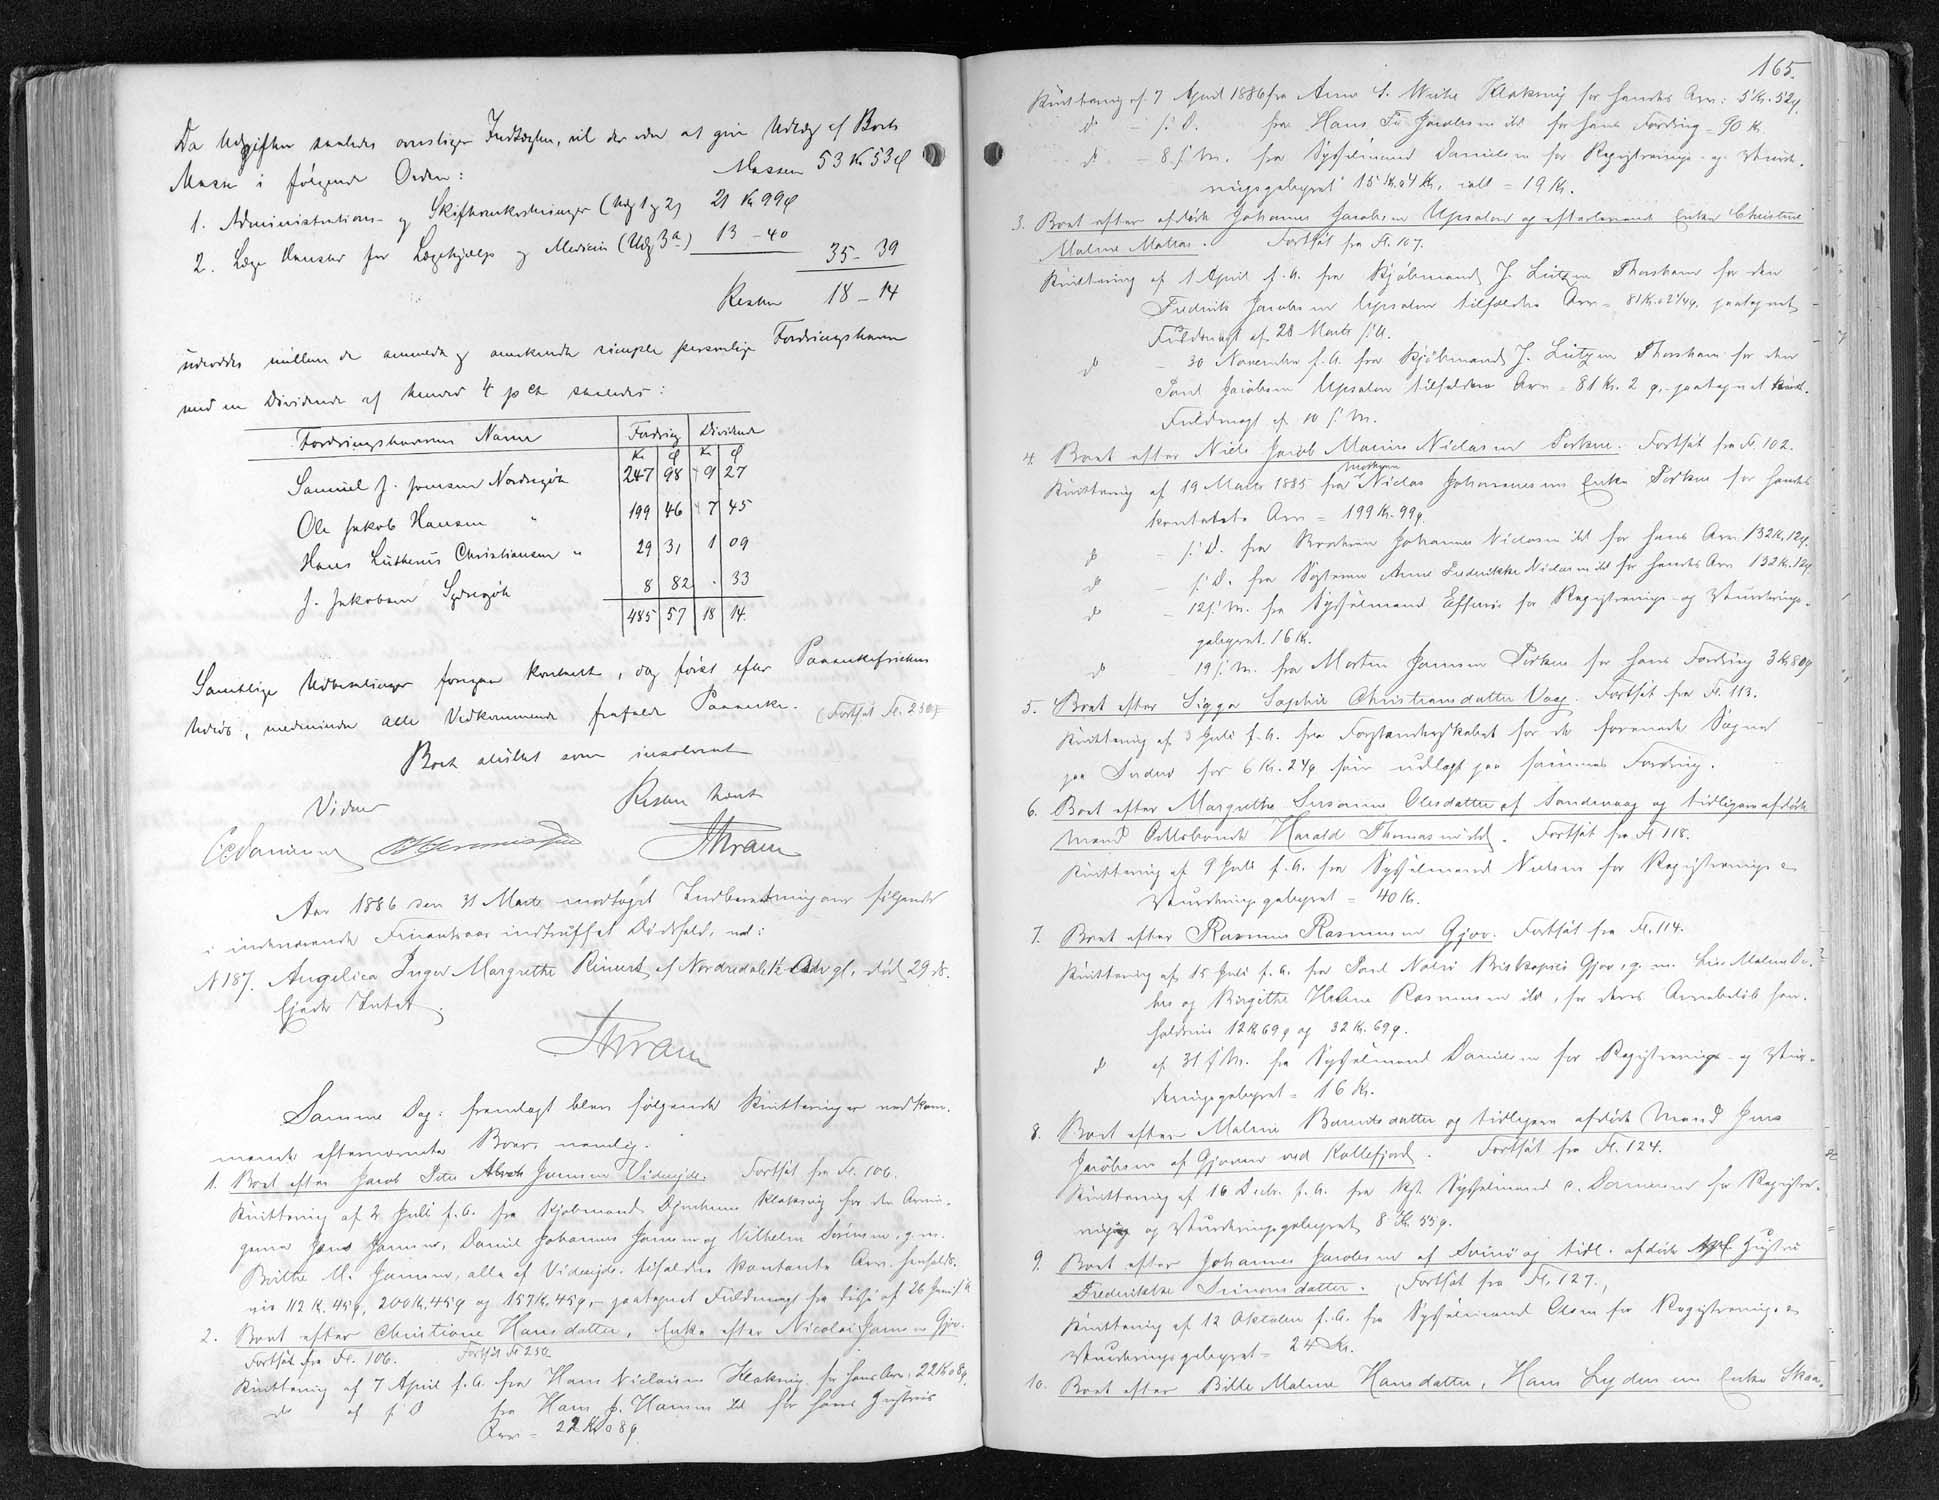 Da Udgifter saaledes overstiger Indtægten, vil der være at give Udlæg af Boets
Masse i følgende Orden: Massen 53 Kr 53 Ø
1. Administrations- og Skifteomkostninger (Udg 1 og 2) 21 Kr 99 Ø
2. Læge for Lægehjælp og Medicin (Udg 3a) 13 - 40
35 - 39
Resten 18 - 14
udloddes mellem de anmeldte og anerkendte simple personlige Fordringshavere
med en Dividende af henved 4 pCt saaledes:
Fordringshavernes Navne Fordring Dividende
Kr Ø Kr Ø
Samuel J. Joensen Nordragöta 247 98 9 27
Ole Jakob Hansen " 199 46 7 45
Hans Lutherus Christiansen " 29 31 1 09
J. Jakobsen Sydragöta 8 82 . 33
485 57 18 14
Samtlige Udbetalinger foregaar kontant, dog først efter Paaankefristens
Udløb, medmindre alle Vedkommende frafalde Paaanke. (Fortsat Fl. 230)
Boet sluttet som insolvent
Vidner Retten hævet
CCDanielsen
Aar 1886 den 31 Marts modtaget Indberetning om følgende
i indeværende Finantsaar indtruffet Dødsfald, nl:
N 187. Angelica Inger Margrethe Reinert af Nordredal 1/2 Aar gl., død 29 ds.
Ejede Intet.
Samme Dag: fremlagt blev følgende Kvitteringer vedkom-
mende efternævnte Boer, nemlig:
1. Boet efter Jacob Peter Jensen Videreide. Fortsat fra Fl. 106.
Kvittering af 2 Juli f. A. fra Kjøbmand Klaksvig for de Arvin-
gerne Jens Jensen, Daniel Johannes Jensen og Vilhelm Sørensen, g. m.
Birthe M. Jensen, alle af Videreide tilfaldne kontante Arv. henholds-
vis 112 K. 45 ø, 200 K. 45 ø og 157 K. 45 ø, - paategnet Fuldmagt fra disse af 26 Juni f. A.
2. Boet efter Christiane Hansdatter, Enke efter Nicolai Jensen Gjov.
Fortsat fra Fl. 106. Fortsat Fl 250
Kvittering af 7 April f. A. fra Hans Niclaisen Klaksvig for hans Arv: 22 K 08 ø.
do af s. D fra Hans J. Hansen ibd for hans Hustrus
Arv = 22 K 08 ø
165.
Kvittering af 7 April 1886 fra Anne S. Klaksvig for hendes Arv: 5 Kr. 52 ø.
do - s. D. fra Hans Fr. Jacobsen ibd for hans Fordring = 90 K.
do - 8 s. M. fra Sysselmand Danielsen for Registrerings- og Vurde-
ringsgebyret 15 K. 04 K., ialt = 19 K.
3. Boet efter afdøde Johannes Jacobsen Upsalon og efterlevende Enke Christine
Malene . Fortsat fra Fl. 107.
Kvittering af 1 April f. A. fra Kjøbmand J. Lützen Thorshavn for den
Frederik Jacobsen Upsalon tilfaldne Arv = 81 Kr. 02 ø, paategnet
Fuldmagt af 28 Marts f. A.
do - 30 November f. A. fra Kjøbmand J. Lützen Thorshavn for den
Poul Jacobsen Upsalon tilfaldne Arv = 81 Kr. 2 ø, - paategnet
Fuldmagt af 10 s. M.
4. Boet efter Niels Jacob Marius Niclasen Porkere. Fortsat fra Fl. 102.
Moderen
Kvittering af 19 Marts 1885 fra Niclas Johannesens Enke Porkere for hendes
kontante Arv = 199 Kr. 99 ø.
do - s. D. fra Broderen Johannes Niclasen ibd for hans Arv 132 K. 12 ø.
do - s. D. fra Søsteren Anne Frederikke Niclasen ibd for hendes Arv 132 K. 12 ø.
do - 12 s. M. fra Sysselmand Effersøe for Registrerings- og Vurderings-
gebyret 16 K.
do - 19 s. M. fra Morten Jensen Porkere for hans Fordring 3 K 80 ø
5. Boet efter Sigga Sophie Christiansdatter Vaag. Fortsat fra Fl. 113.
Kvittering af 3 Juli f. A. fra Forstanderskabet for de forenede Sogne
paa Suderø for 6 Kr. 24 ø som udlagt paa sammes Fordring.
6. Boet efter Margrethe Susanne Olesdatter af Sandevaag og tidligere afdøde
Mand Odelsbonde Harald Thomasen ibd. Fortsat fra Fl. 118.
Kvittering af 9 Juli f. A. fra Sysselmand Nielsen for Registrerings &
Vurderingsgebyret = 40 K.
7. Boet efter Rasmus Rasmussen Gjov. Fortsat fra Fl. 114.
Kvittering af 15 Juli f. A. fra Poul Nolsø Gjov, g. m.
og Birgithe Helene Rasmussen ibd, for deres Arvebeløb hen-
holdsvis 12 K 69 ø og 32 K. 69 ø.
do af 31 s. M. fra Sysselmand Danielsen for Registrerings- og Vur-
deringsgebyret = 16 K.
8. Boet efter Malene Berentsdatter og tidligere afdøde Mand Jens
Jacobsen af Gjovene ved Kollefjord. Fortsat fra Fl. 124.
Kvittering af 16 Decbr. f. A. fra Kst. Sysselmand C. Danielsen for Registre-
rings og Vurderingsgebyret 8 K. 55 ø.
9. Boet efter Johannes Jacobsen af Svinø og tidl. afdøde Hustru
Frederikke Simonsdatter. (Fortsat fra Fl. 127.)
Kvittering af 12 Oktober f. A. fra Sysselmand Olsen for Registrerings &
Vurderingsgebyret = 24 Kr.
10. Boet efter Bille Malene Hansdatter, Hans Lydersens Enke